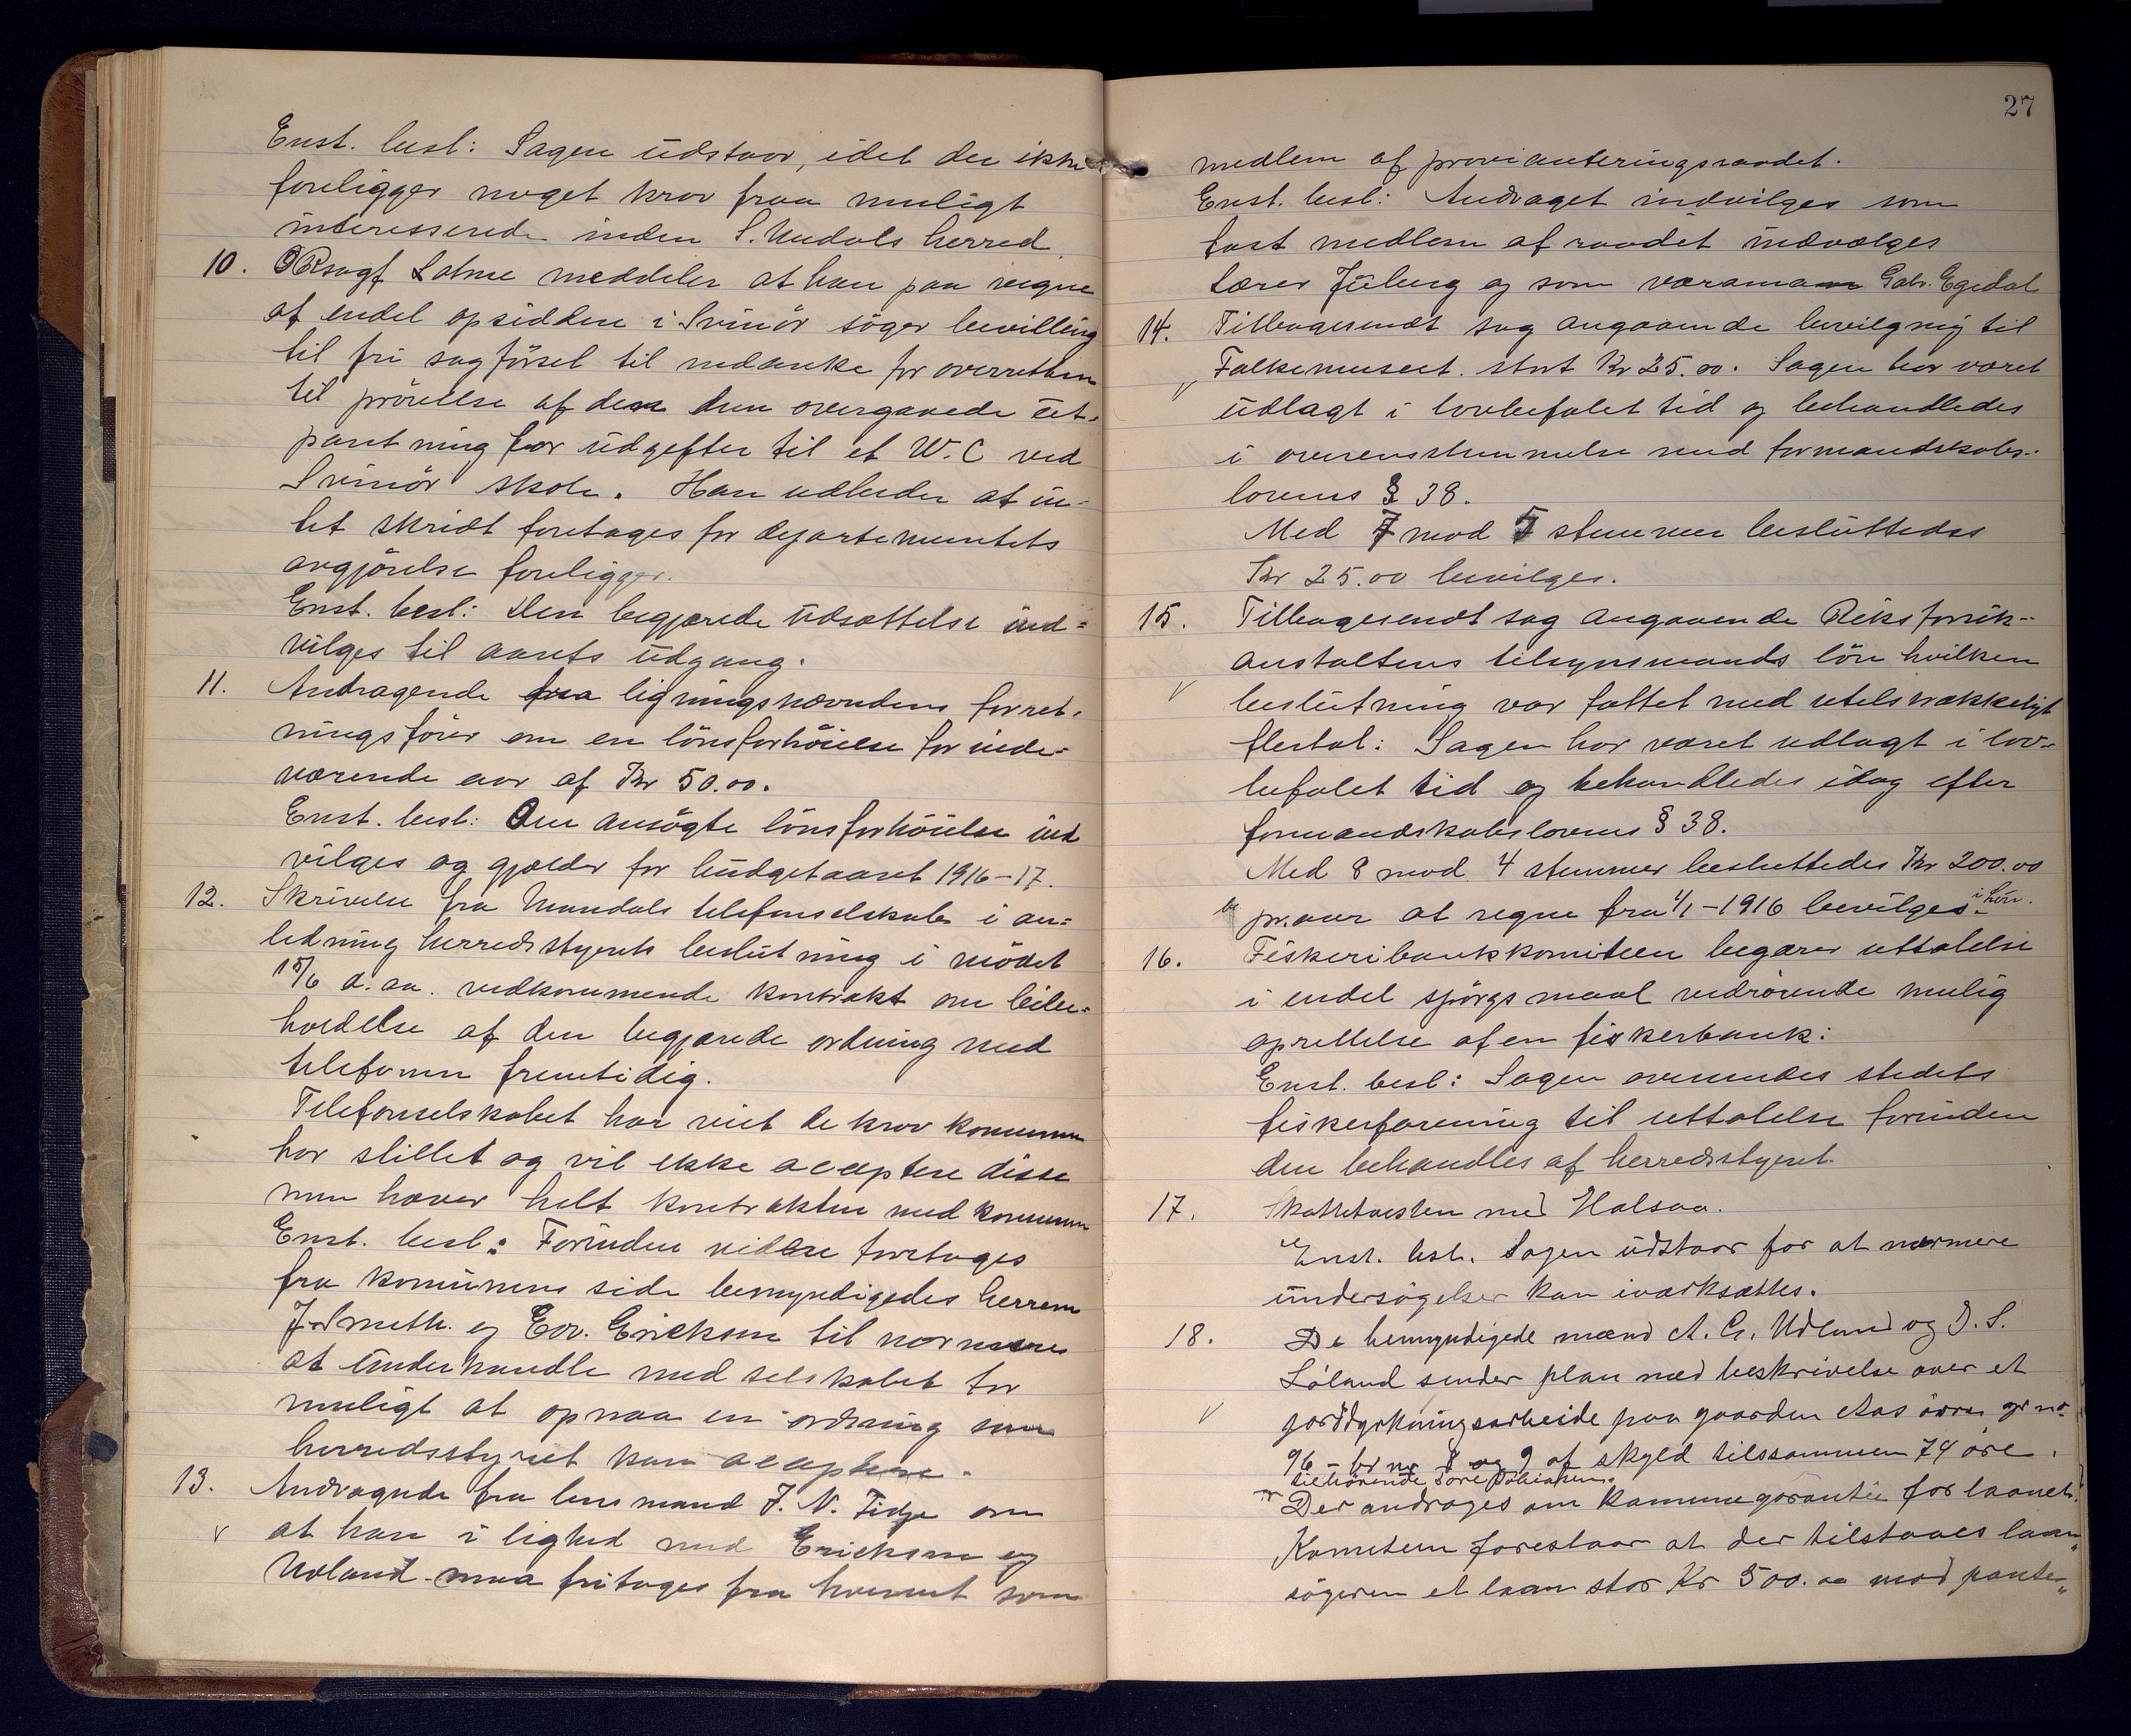 Enst. besl: Sagen udstaar, idet der ikke
foreligger noget krav fraa muligt
interesserede inden S. Undals herred.
10. ORsagf Salme meddeler at han paa vegne
af endel opsiddere i Svinör söger bevilling
til fri sagförsel til nedanke for overretten
til prövelse af den dem overgaaede ut-
pantning for udgifter til et W.C ved
Svinör skole. Han udbeder at in-
tet skridt foretages for departementets
avgjörelse foreligger.
Enst. besl: Den begjærede udsættelse ind=
vilges til aarets udgang.
11. Andragende fra ligningsnævndens forret-
ningsförer om en lönsforhöielse for inde-
værende aar af Kr 50.00.
Enst. besl: Den ansögte lönsforhöielse ind
vilges og gjælder for budgetaaret 1916-17.
12. Skrivelse fra Mandals telefonselskab i an=
ledning herredsstyrets beslutning i mödet
15/6 d. aa. vedkommende kontrakt om beibe=
holdelse af den begjærede ordning med
telefonen fremtidig.
Telefonselskabet har veiet de krav kommunen
har stillet og vil ikke acceptere disse
men hæver helt kontrakten med kommunen
Enst. besl: Forinden videre foretages
fra komunens side bemyndigedes herrerne
J. Smeth. og Edv. Ericksen til nærmere
at underhandle med selskabet for
muligt at opnaa en ordning som
herredsstyret kan acceptere.
13. Andragende fra lensmand J. N. Tidje om
v at han i lighed med Ericksen og
Udland maa fritages fra hvervet som
27
medlem af provianteringsraadet.
Enst. besl: Andraget indvilges som
fast medlem af raadet indvælges
Lærer Juberg og som varamann Gabr. Egedal
14. Tilbagesendt sag angaaende bevilgnig til
v Folkemuseet. stort Kr 25.00. Sagen har været
udlagt i lovbefalet tid og behandledes
i overensstemmelse med formandskabs-
lovens § 38.
Med 7 mod 5 stemmer besluttedes
Kr 25.00 bevilges.
15. Tilbagesendt sag angaaende Riksforsik-
anstaltens tilsynsmands lön hvilken
v beslutning var fattet med utilstrækkeligt
flertal: Sagen har været udlagt i lov-
befalet tid og behandledes idag efter
formandskabslovens § 38.
Med 8 mod 4 stemmer besluttedes Kr 200.00
pr. aar at regne fra 1/1-1916 bevilges i lön.
16. Fiskeribankkomiteen begærer uttalelse
i endel spörgsmaal vedrörende mulig
oprettelse af en fiskerbank:
Enst. besl: Sagen oversendes stedets
fiskerforening til uttalelse forinden
den behandles af herredsstyret.
17. Skattetvisten med Halsaa.
Enst. besl. Sagen udstaar for at nærmere
undersögelser kan iværksættes.
18. De bemyndigede mænd A. G. Udland og D. S.
Löland sender plan med beskrivelse over et
v jorddyrkningsarbeide paa gaarden Aas övre gr no
96 - br no 8 og 9 af skyld tilssammen 74 öre.
tilhörende Tore Tobiasen.
Der andrages om kommunegarantie for laanet.
Kometeen forestaar at der tilstaaes laan„
sögeren et laan stor Kr 500.00 mod pante„